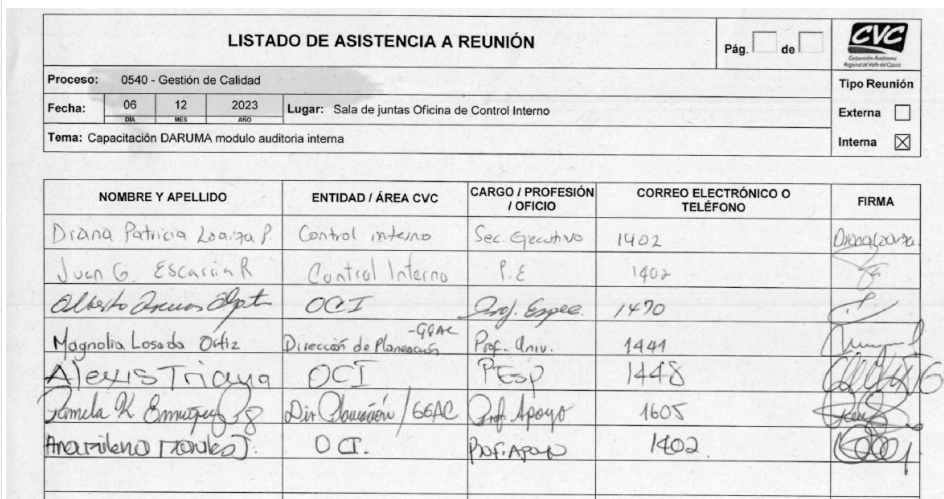 LISTADO DE ASISTENCIA A REUNIÓN
Pág. de
CVC
Corporación Autónoma
Regional del Valle del Cauca
Proceso: 0540 - Gestión de Calidad
Tipo Reunión
Fecha: 06 12 2023 Lugar: Sala de juntas Oficina de Control Interno
DÍA MES AÑO
Externa
Tema: Capacitación DARUMA modulo auditoria interna
Interna
NOMBRE Y APELLIDO ENTIDAD / ÁREA CVC CARGO / PROFESIÓN / OFICIO CORREO ELECTRÓNICO O TELÉFONO FIRMA
Diana Patricia Loaiza P. Control interno Sec. Ejecutivo 1402 Diana Loaiza.
Juan G. Escarria R Control Interno P.E 1402
Alberto OCI Prof. Espec. 1470
Magnolia Losada Ortiz Dirección de Planeación -GGAC Prof. Univ. 1441
Alexis Triana OCI P. Esp 1448
Pamela K. Dir Planeación / GGAC Prof. Apoyo 1605
OCI. Prof. Apoyo 1402